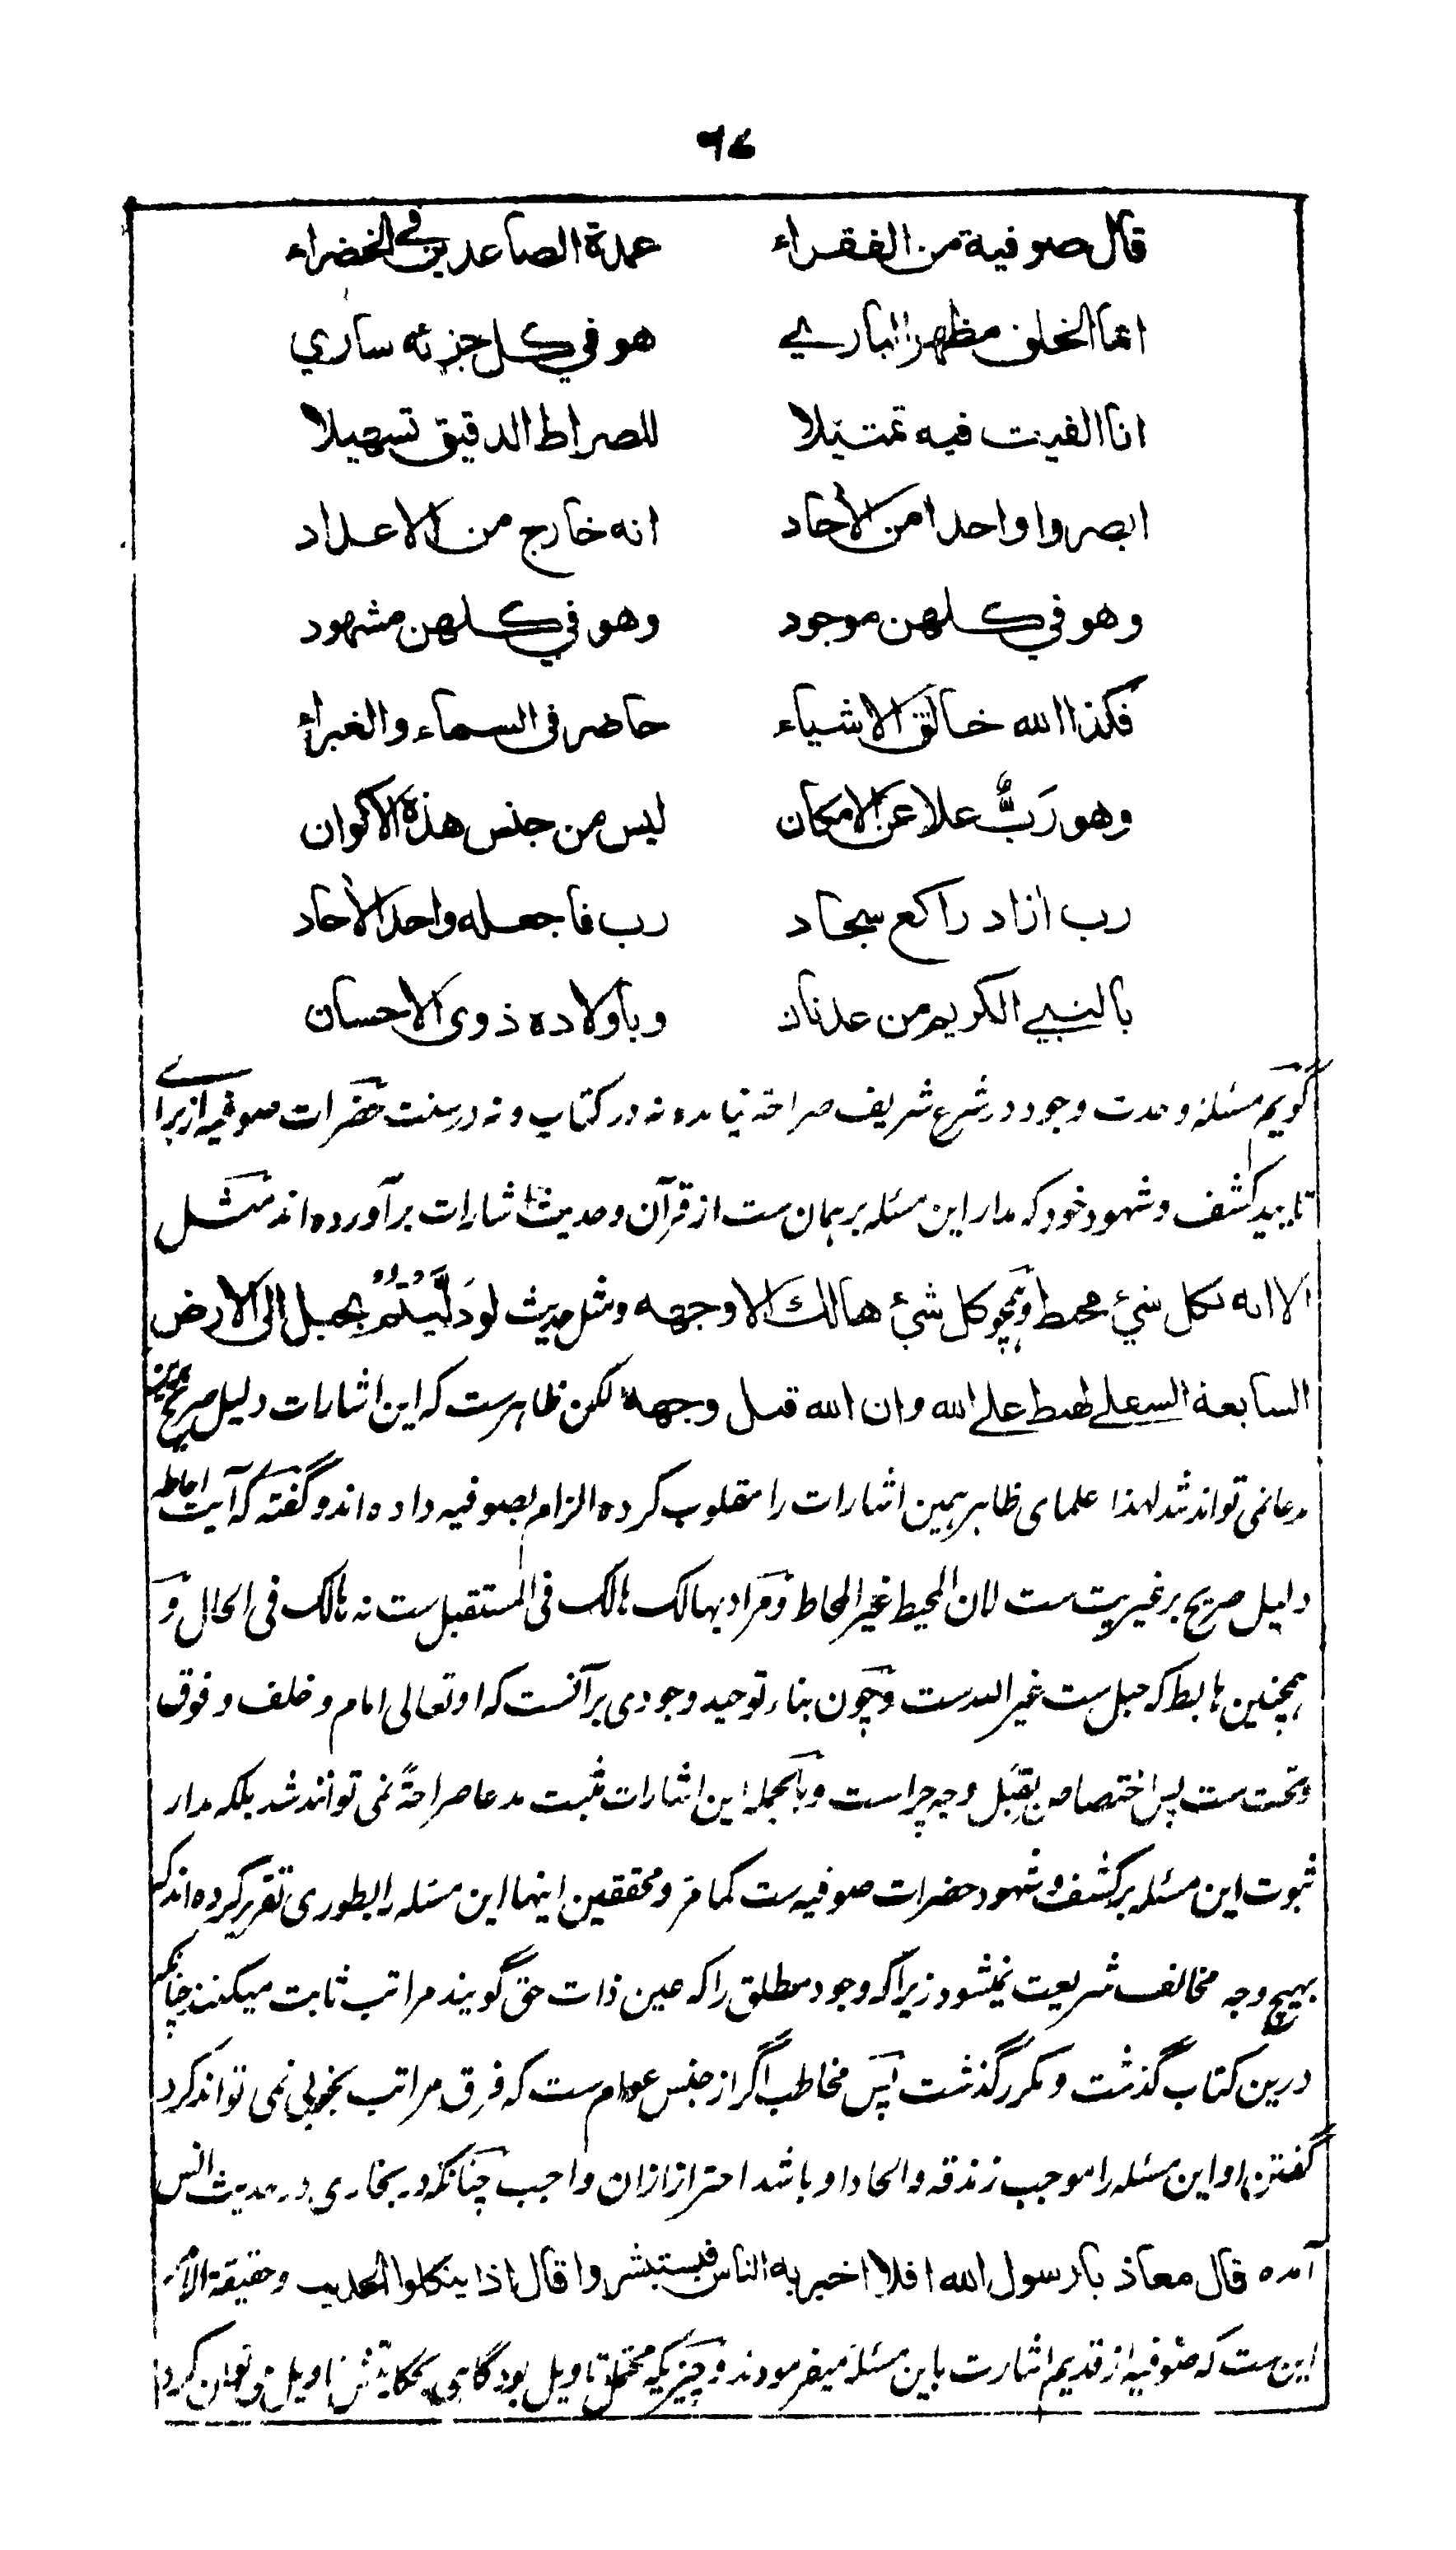 ۹۷
قال صوفية من الفقراء عمدة الصاعدين في الخضراء
انما الخلق مظهر الباري هو في كل جزئه ساري
انا الفيت فيه تمثيلا للصراط الدقيق تسهيلا
ابصروا واحدا من الأحاد انه خارج من الاعداد
وهو في كلهن موجود وهو في كلهن مشهود
فكذا الله خالق الاشياء حاضر في السماء والغبراء
وهو رَبٌّ علا عن الامكان ليس من جنس هذه الاكوان
رب ازاد راكع سجاد رب فاجعله واحد الأحاد
بالنبي الكريم من عدنان وباولاده ذوى الاحسان
گویم مسئله وحدت وجود در شرع شریف صراحة نیامده نه در کتاب و نه در سنت حضرات صوفیه از برای
تایید کشف و شهود خود که مدار این مسئله بر همان ست از قرآن و حدیث اشارات برآورده اند مثل
الا انه بكل شيء محيط و همچو كل شيء هالك الا وجهه و مثل حدیث لو دَلَّيتُم بحبل الى الارض
السابعة السفلى لهبط على الله و ان الله قبل وجهه لکن ظاهرست که این اشارات دلیل صریح برین
مدعا نمی تواند شد لهذا علمای ظاهر همین اشارات را مقلوب کرده الزام بصوفیه داده اند و گفته که آیت احاطه
دلیل صریح بر غیریت ست لان المحیط غیر المحاط و مراد بهالک هالک فی المستقبل ست نه هالک فی الحال و
همچنین هابط که حبل ست غیر الله ست و چون بناء توحید وجودی بر آنست که او تعالی امام و خلف و فوق
و تحت ست پس اختصاص بقِبَل وجه چراست و بالجمله این اشارات مثبت مدعا صراحةً نمی توانند شد بلکه مدار
ثبوت این مسئله بر کشف و شهود حضرات صوفیه ست کما مر و محققین اینها این مسئله را بطوری تقریر کرده اند که
بهیچ وجه مخالف شریعت نمیشود زیرا که وجود مطلق را که عین ذات حق گویند مراتب ثابت میکنند چنانکه
درین کتاب گذشت و مکرر گذشت پس مخاطب اگر از جنس عوام ست که فرق مراتب بخوبی نمی تواند کرد
گفتن باو این مسئله را موجب زندقه و الحاد او باشد احتراز ازان واجب چنانکه در بخاری در حدیث انس
آمده قال معاذ يا رسول الله افلا اخبر به الناس فيستبشروا قال اذا يتكلوا الحديث و حقیقة الامر
این ست که صوفیه از قدیم اشارت باین مسئله میفرمودند و چیزیکه محتمل تاویل بود گاهی بحکایتش تاویل می توان کرد